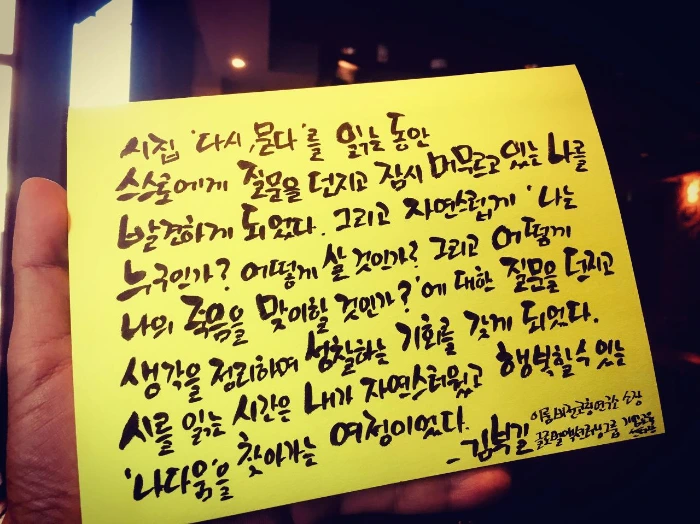 시집 '다시, 묻다'를 읽는 동안
스스로에게 질문을 던지고 잠시 머무르고 있는 나를
발견하게 되었다. 그리고 자연스럽게 '나는
누구인가? 어떻게 살 것인가? 그리고 어떻게
나의 죽음을 맞이할 것인가?'에 대한 질문을 던지고
생각을 정리하며 성찰하는 기회를 갖게 되었다.
시를 읽는 시간은 내가 자연스러웠고 행복할 수 있는
'나다움'을 찾아가는 여정이었다.
-김북길
이룸비전코칭연구소 소장
글로벌액션러닝그룹